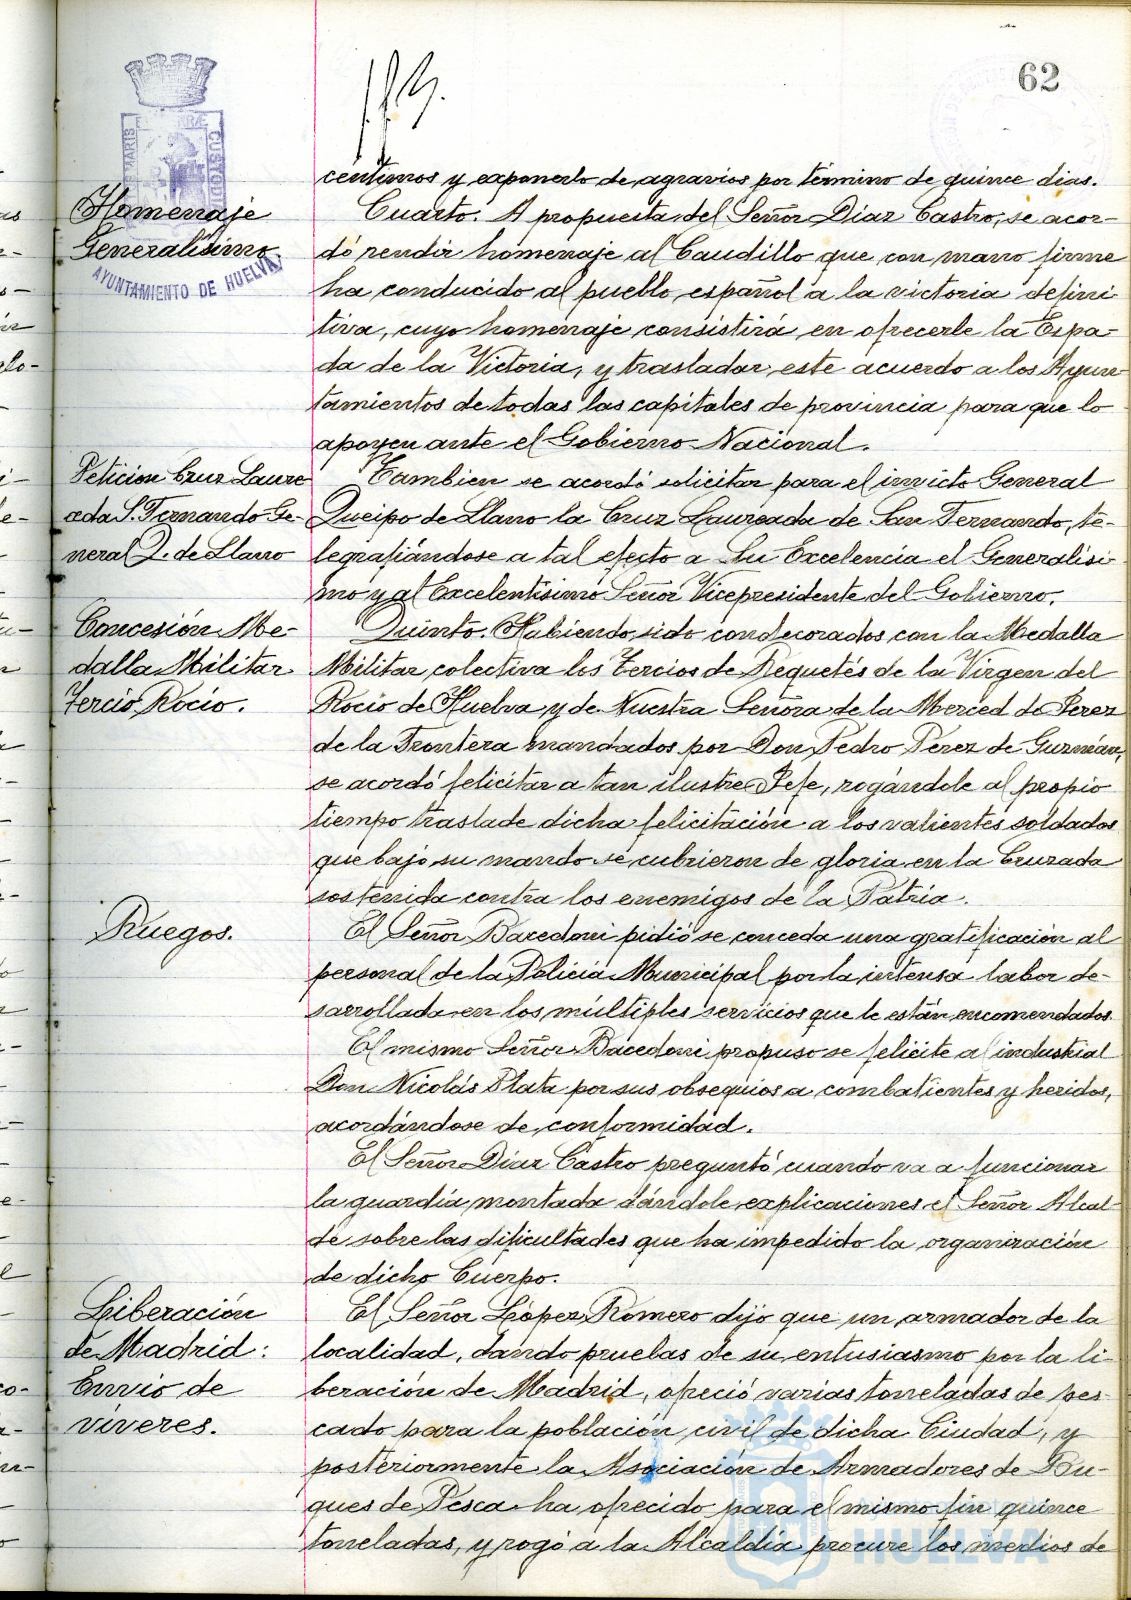 62
céntimos y exponerlo de agravios por término de quince dias.
Homenaje
Generalísimo.
AYUNTAMIENTO DE HUELVA
Cuarto. A propuesta del Señor Díaz Castro, se acor-
dó rendir homenaje al Caudillo que con mano firme
ha conducido al pueblo español a la victoria defini-
tiva, cuyo homenaje consistirá en ofrecerle la Espa-
da de la Victoria, y trasladar este acuerdo a los Ayun-
tamientos de todas las capitales de provincia para que lo
apoyen ante el Gobierno Nacional.
Peticion Cruz Laure
ada S. Fernando Ge-
neral Q. de Llano
Tambien se acordó solicitar para el invicto General
Queipo de Llano la Cruz Laureada de San Fernando, te-
legrafiándose a tal efecto a Su Excelencia el Generalísi-
mo y al Excelentísimo Señor Vicepresidente del Gobierno.
Concesión Me-
dalla Militar
Tercio Rocío.
Quinto. Habiendo sido condecorados con la Medalla
Militar colectiva los Tercios de Requetés de la Virgen del
Rocío de Huelva y de Nuestra Señora de la Merced de Jerez
de la Frontera mandados por Don Pedro Pérez de Guzmán,
se acordó felicitar a tan ilustre Jefe, rogándole al propio
tiempo traslade dicha felicitación a los valientes soldados
que bajo su mando se cubrieron de gloria en la Cruzada
sostenida contra los enemigos de la Patria.
Ruegos.
El Señor Bacedoni pidió se conceda una gratificación al
personal de la Policia Municipal por la intensa labor de-
sarrollada en los múltiples servicios que le están encomendados.
El mismo Señor Bacedoni propuso se felicite al industrial
Don Nicolás Plata por sus obsequios a combatientes y heridos,
acordándose de conformidad.
El Señor Díaz Castro preguntó cuando va a funcionar
la guardia montada dándole explicaciones el Señor Alcal-
de sobre las dificultades que ha impedido la organización
de dicho Cuerpo.
Liberación
de Madrid:
Envío de
víveres.
El Señor López Romero dijo que un armador de la
localidad, dando pruebas de su entusiasmo por la li-
beración de Madrid, ofreció varias toneladas de pes-
cado para la población civil de dicha Ciudad, y
posteriormente la Asociación de Armadores de Bu-
ques de Pesca ha ofrecido para el mismo fin quince
toneladas, y rogó a la Alcaldía procure los medios de
HUELVA